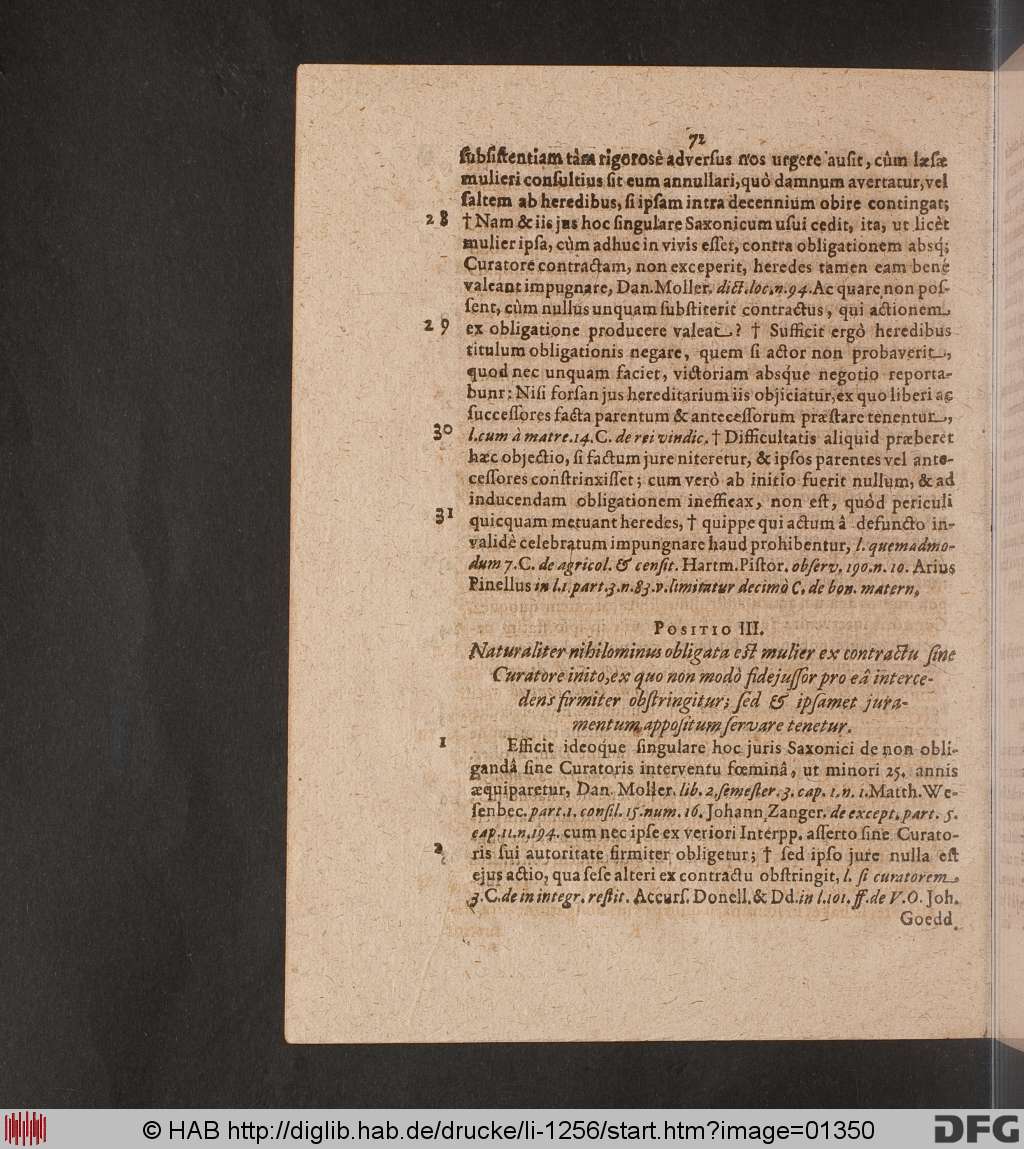 72
ſubſiſtentiam tàm rigorosè adverſus nos urgere auſit, cùm læſæ
mulieri conſultius ſit eum annullari, quò damnum avertatur, vel
ſaltem ab heredibus, ſi ipſam intra decennium obire contingat;
28 † Nam & iis jus hoc ſingulare Saxonicum uſui cedit, ita, ut licèt
mulier ipſa, cùm adhuc in vivis eſſet, contra obligationem absq́;
Curatore contractam, non exceperit, heredes tamen eam bene
valeant impugnare, Dan. Moller. dict. loc. n. 94. Ac quare non poſ-
ſent, cùm nullus unquam ſubſtiterit contractus, qui actionem
29 ex obligatione producere valeat? † Sufficit ergò heredibus
titulum obligationis negare, quem ſi actor non probaverit,
quod nec unquam faciet, victoriam absq́ue negotio reporta-
bunt: Niſi forſan jus hereditarium iis objiciatur, ex quo liberi ac
ſucceſſores facta parentum & anteceſſorum præſtare tenentur,
30 l. cum à matre. 14. C. de rei vindic. † Difficultatis aliquid præberet
hæc objectio, ſi factum jure niteretur, & ipſos parentes vel ante-
ceſſores conſtrinxiſſet; cum verò ab initio fuerit nullum, & ad
inducendam obligationem inefficax, non eſt, quòd periculi
31 quicquam metuant heredes, † quippe qui actum â defuncto in-
validè celebratum impungnare haud prohibentur, l. quemadmo-
dum 7. C. de agricol. & cenſit. Hartm. Piſtor. obſerv. 190. n. 10. Arius
Pinellus in l. 1. part. 3. n. 83. v. limitatur decimò C. de bon. matern.
POSITIO III.
Naturaliter nihilominus obligata eſt mulier ex contractu ſine
Curatore inito, ex quo non modò fidejuſſor pro eâ interce-
dens firmiter obſtringitur; ſed & ipſamet jura-
mentum appoſitum ſervare tenetur.
1 Efficit ideoque ſingulare hoc juris Saxonici de non obli-
gandâ ſine Curatoris interventu fœminâ, ut minori 25. annis
æquiparetur, Dan. Moller. lib. 2. ſemeſter. 3. cap. 1. n. 1. Matth. We-
ſenbec. part. 1. conſil. 15. num. 16. Johann Zanger. de except. part. 5.
cap. 11. n. 194. cum nec ipſe ex veriori Interpp. aſſerto ſine Curato-
2 ris ſui autoritate firmiter obligetur; † ſed ipſo jure nulla eſt
ejus actio, qua ſeſe alteri ex contractu obſtringit, l. ſi curatorem
3. C. de in integr. reſtit. Accurſ. Donell. & Dd. in l. 101. ff. de V. O. Joh.
Goedd.
© HAB http://diglib.hab.de/drucke/li-1256/start.htm?image=01350
DFG